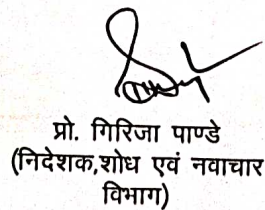 प्रो. गिरिजा पाण्डे
(निदेशक,शोध एवं नवाचार
विभाग)